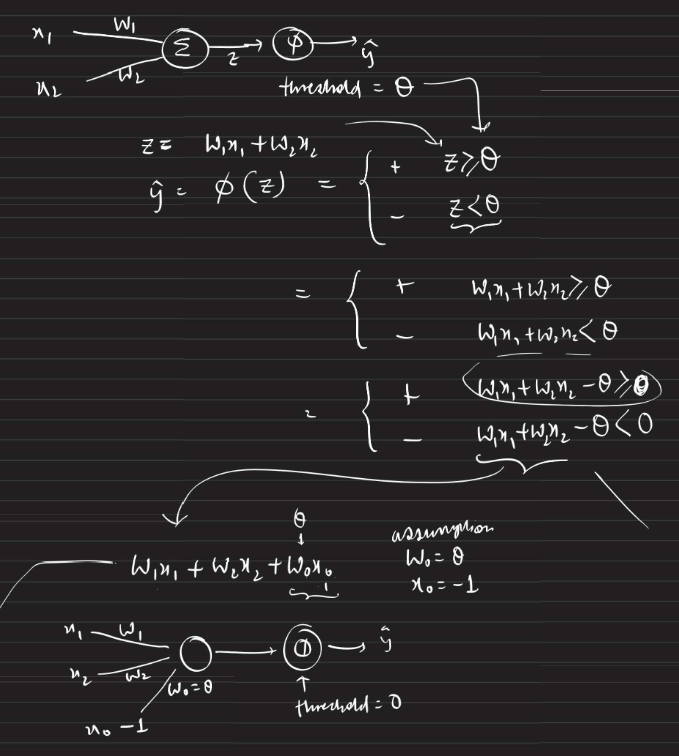 x₁ w₁ Σ z ϕ ŷ
x₂ w₂
threshold = θ
z = w₁x₁ + w₂x₂
ŷ = ϕ(z) = { + z ≥ θ
− z < θ
= { + w₁x₁ + w₂x₂ ≥ θ
− w₁x₁ + w₂x₂ < θ
= { + w₁x₁ + w₂x₂ − θ ≥ 0
− w₁x₁ + w₂x₂ − θ < 0
θ
w₁x₁ + w₂x₂ + w₀x₀
assumption
w₀ = θ
x₀ = −1
x₁ w₁ ϕ ŷ
x₂ w₂
w₀ = θ
x₀ −1
threshold = 0